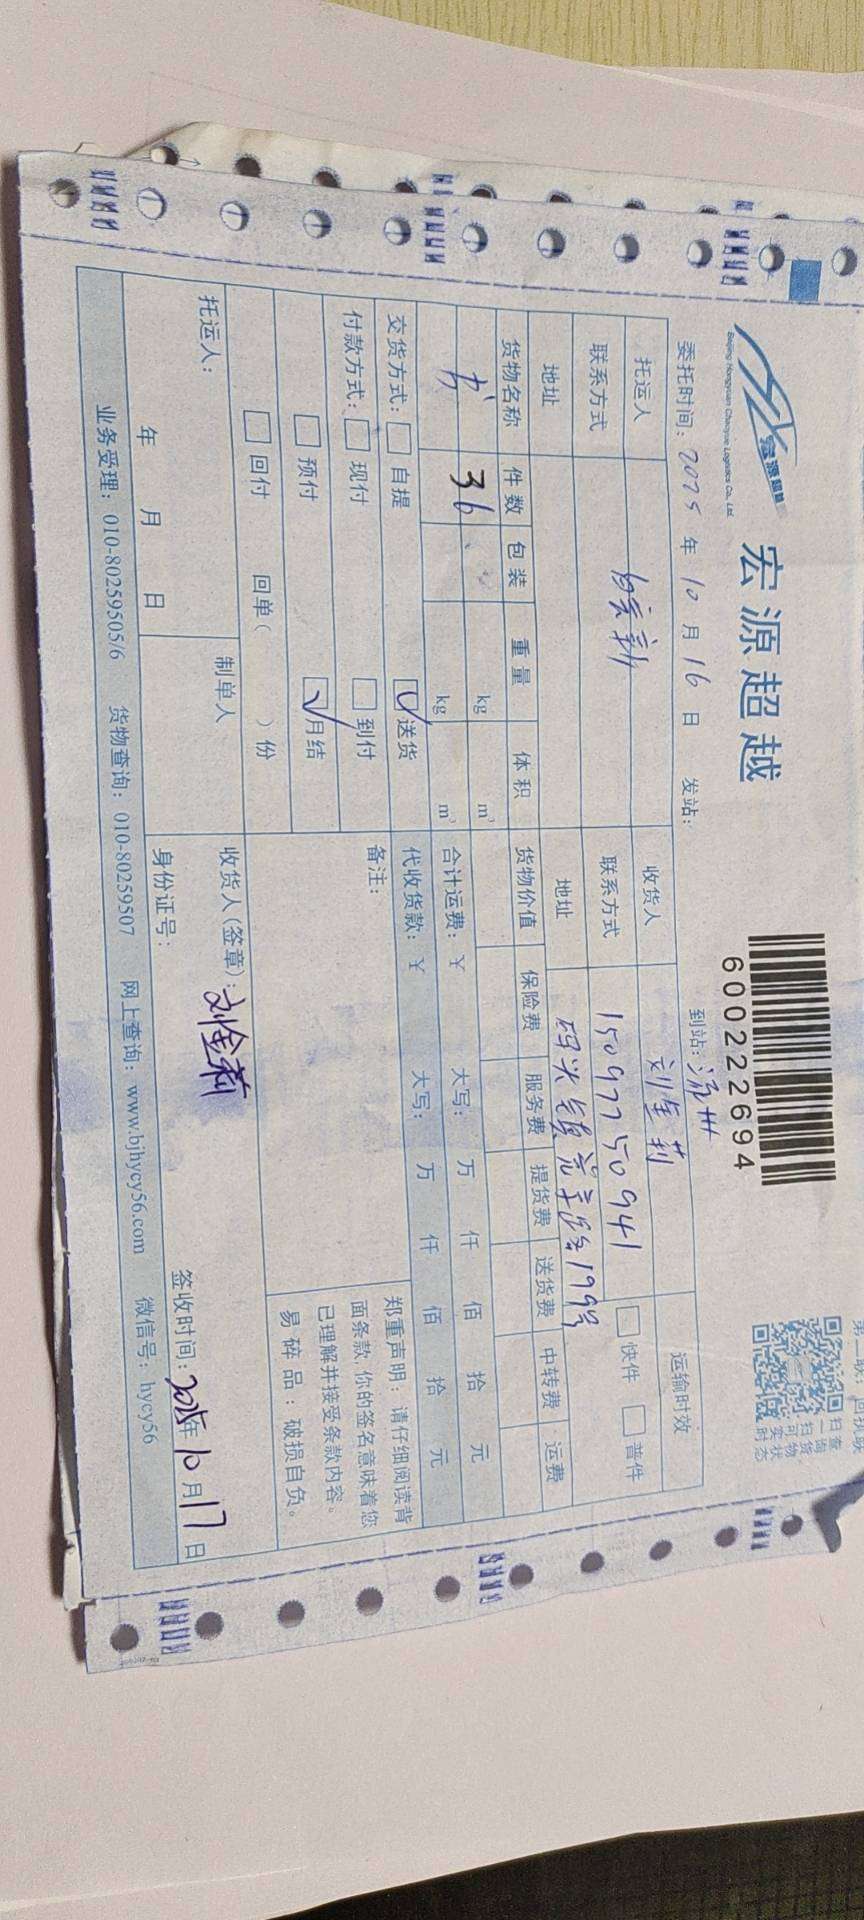 第二联：回执联
宏源超越
Beijing Hongyuan Chaoyue Logistics Co., Ltd.
宏源超越
600222694
扫一扫
查询货物
可实时状态
委托时间：2025 年 10 月 16 日 发站： 到站：
托运人 收货人 刘金莉 运输时效
联系方式 联系方式 15097750941 快件 普件
地址 地址 码头镇 199号
货物名称 件数 包装 重量 体积 货物价值 保险费 服务费 提货费 送货费 中转费 运费
书 36 kg m³
kg m³ 合计运费：¥ 大写： 万 仟 佰 拾 元
交货方式： 自提 送货 代收货款：¥ 大写： 万 仟 佰 拾 元
付款方式： 现付 到付 备注： 郑重声明：请仔细阅读背
面条款，你的签名意味着您
预付 月结 已理解并接受条款内容。
回付 回单（ ）份 易碎品：破损自负。
托运人： 制单人 收货人(签章)：刘金莉
年 月 日 身份证号： 签收时间：2025年10月17日
业务受理：010-80259505/6 货物查询：010-80259507 网上查询：www.bjhycy56.com 微信号：hycy56